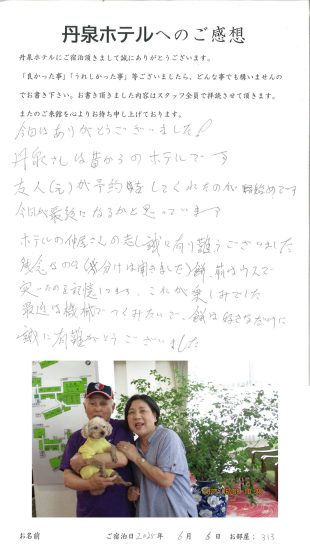 丹泉ホテルへのご感想
丹泉ホテルにご宿泊頂きまして誠にありがとうございます。
「良かった事」「うれしかった事」等ございましたら、どんな事でも構いませんの
でお書き下さい。お書き頂きました内容はスタッフ全員で拝読させて頂きます。
またのご来館を心よりお待ち申し上げております。
今回はありがとうございました!
丹泉さんは昔からのホテルです
友人(元)が予約 してくれたのが 始めです
今回が最後になるかと思っています
ホテルの仲居さんの 誠に有り難うございました
残念なのは( は聞きました)餅 前はウスで
つ を記憶してます、これが楽しみでした
最近は機械でつくみたいで、餅は好きなだけに
誠に有難がとうございました
お名前 ご宿泊日 2025年 6月 6日 お部屋: 313